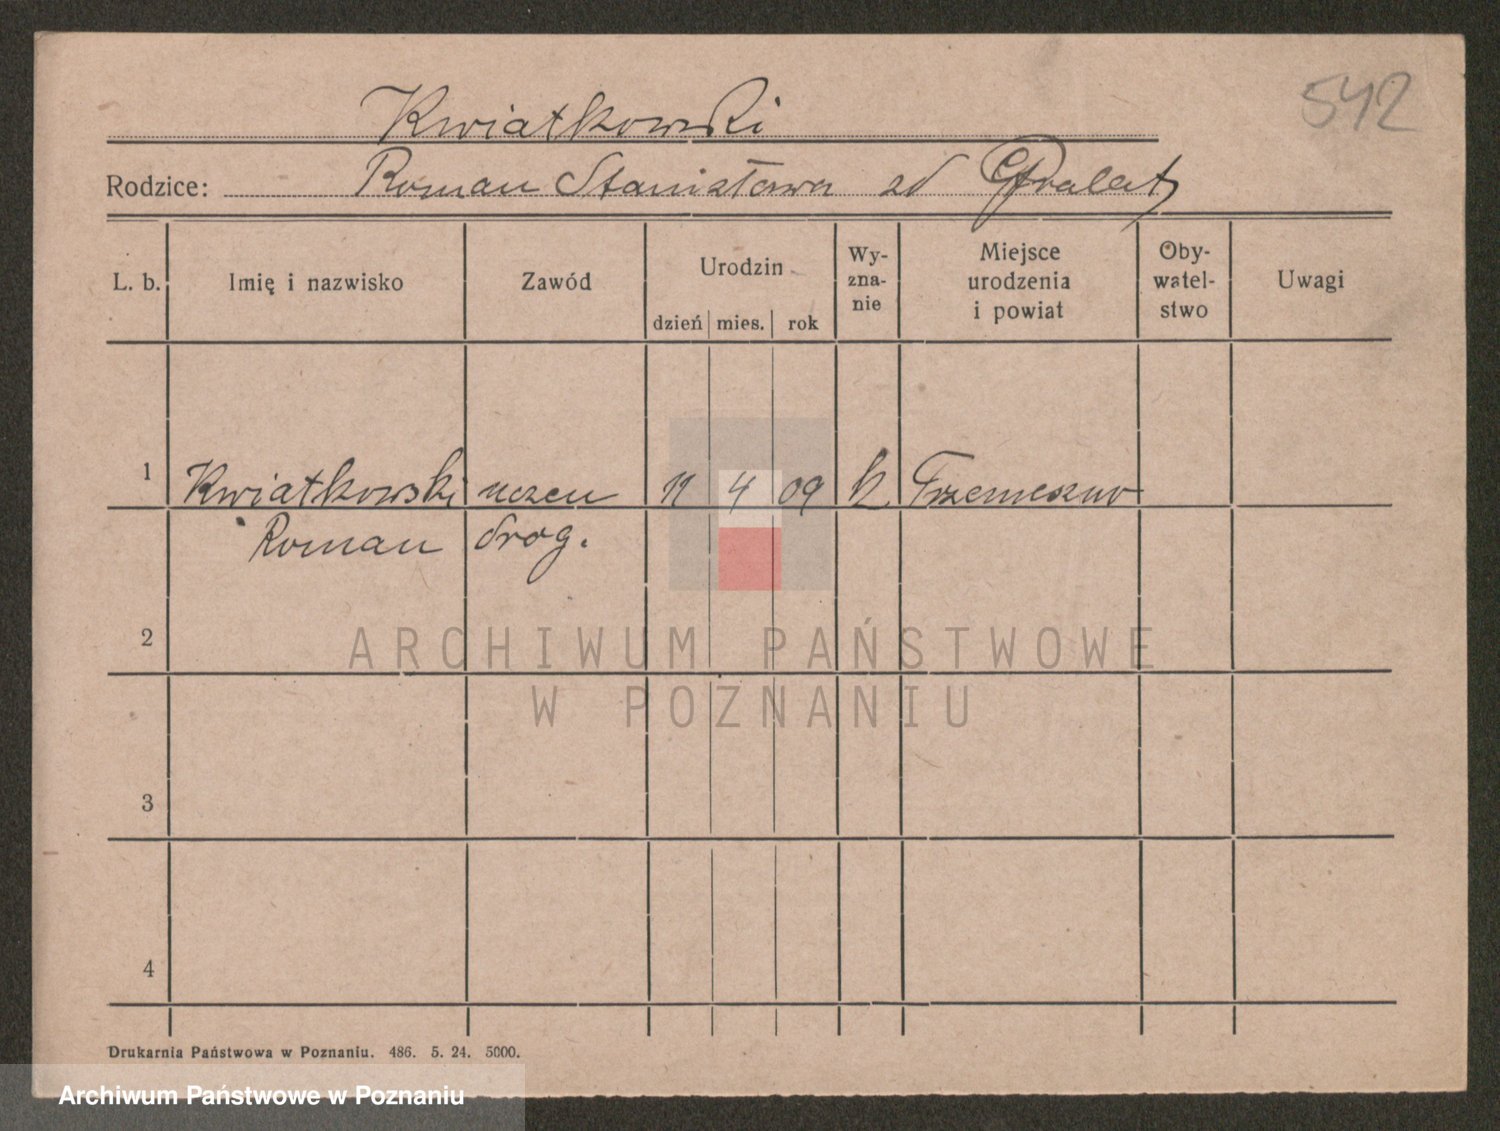 542
Kwiatkowski
Rodzice: Roman Stanisława zd
L. b. Imię i nazwisko Zawód Urodzin dzień mies. rok Wy-zna-nie Miejsce urodzenia i powiat Oby-watel-stwo Uwagi
1 Kwiatkowski uczeń 11 4 09 k Trzemeszno
Roman drog.
2
3
4
ARCHIWUM PAŃSTWOWE
W POZNANIU
Drukarnia Państwowa w Poznaniu. 486. 5. 24. 5000.
Archiwum Państwowe w Poznaniu